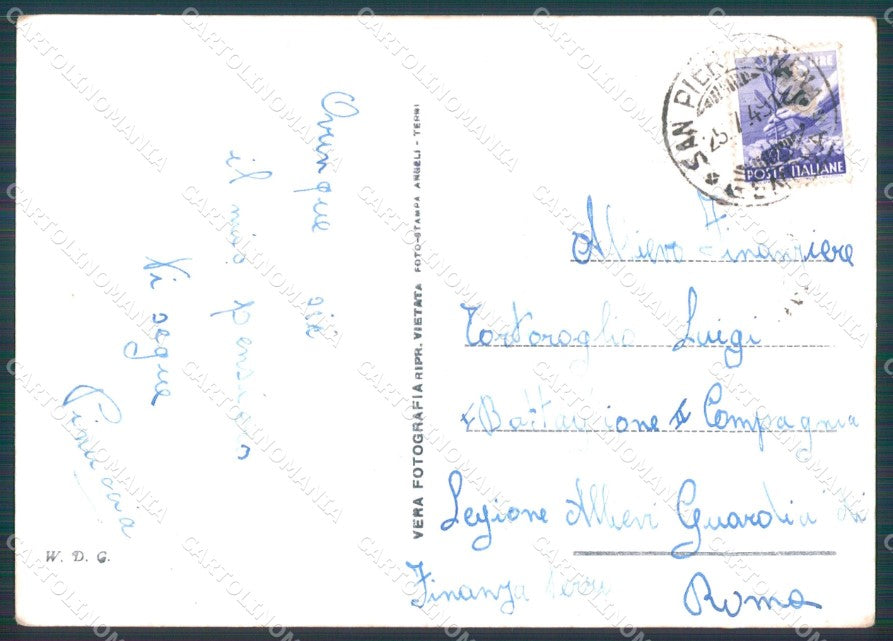 Ovunque sii
il mio pensiero
Vi segue
Pinuccia
W. D. G.
VERA FOTOGRAFIA RIPR. VIETATA FOTO-STAMPA ANGELI - TERNI
SAN PIER
25.7.49
LIRE
POSTE ITALIANE
Allievo Finanziere
Tortoroglio Luigi
Battaglione Compagnia
Legione Allievi Guardia di
Finanza
Roma
CARTOLINOMANIA